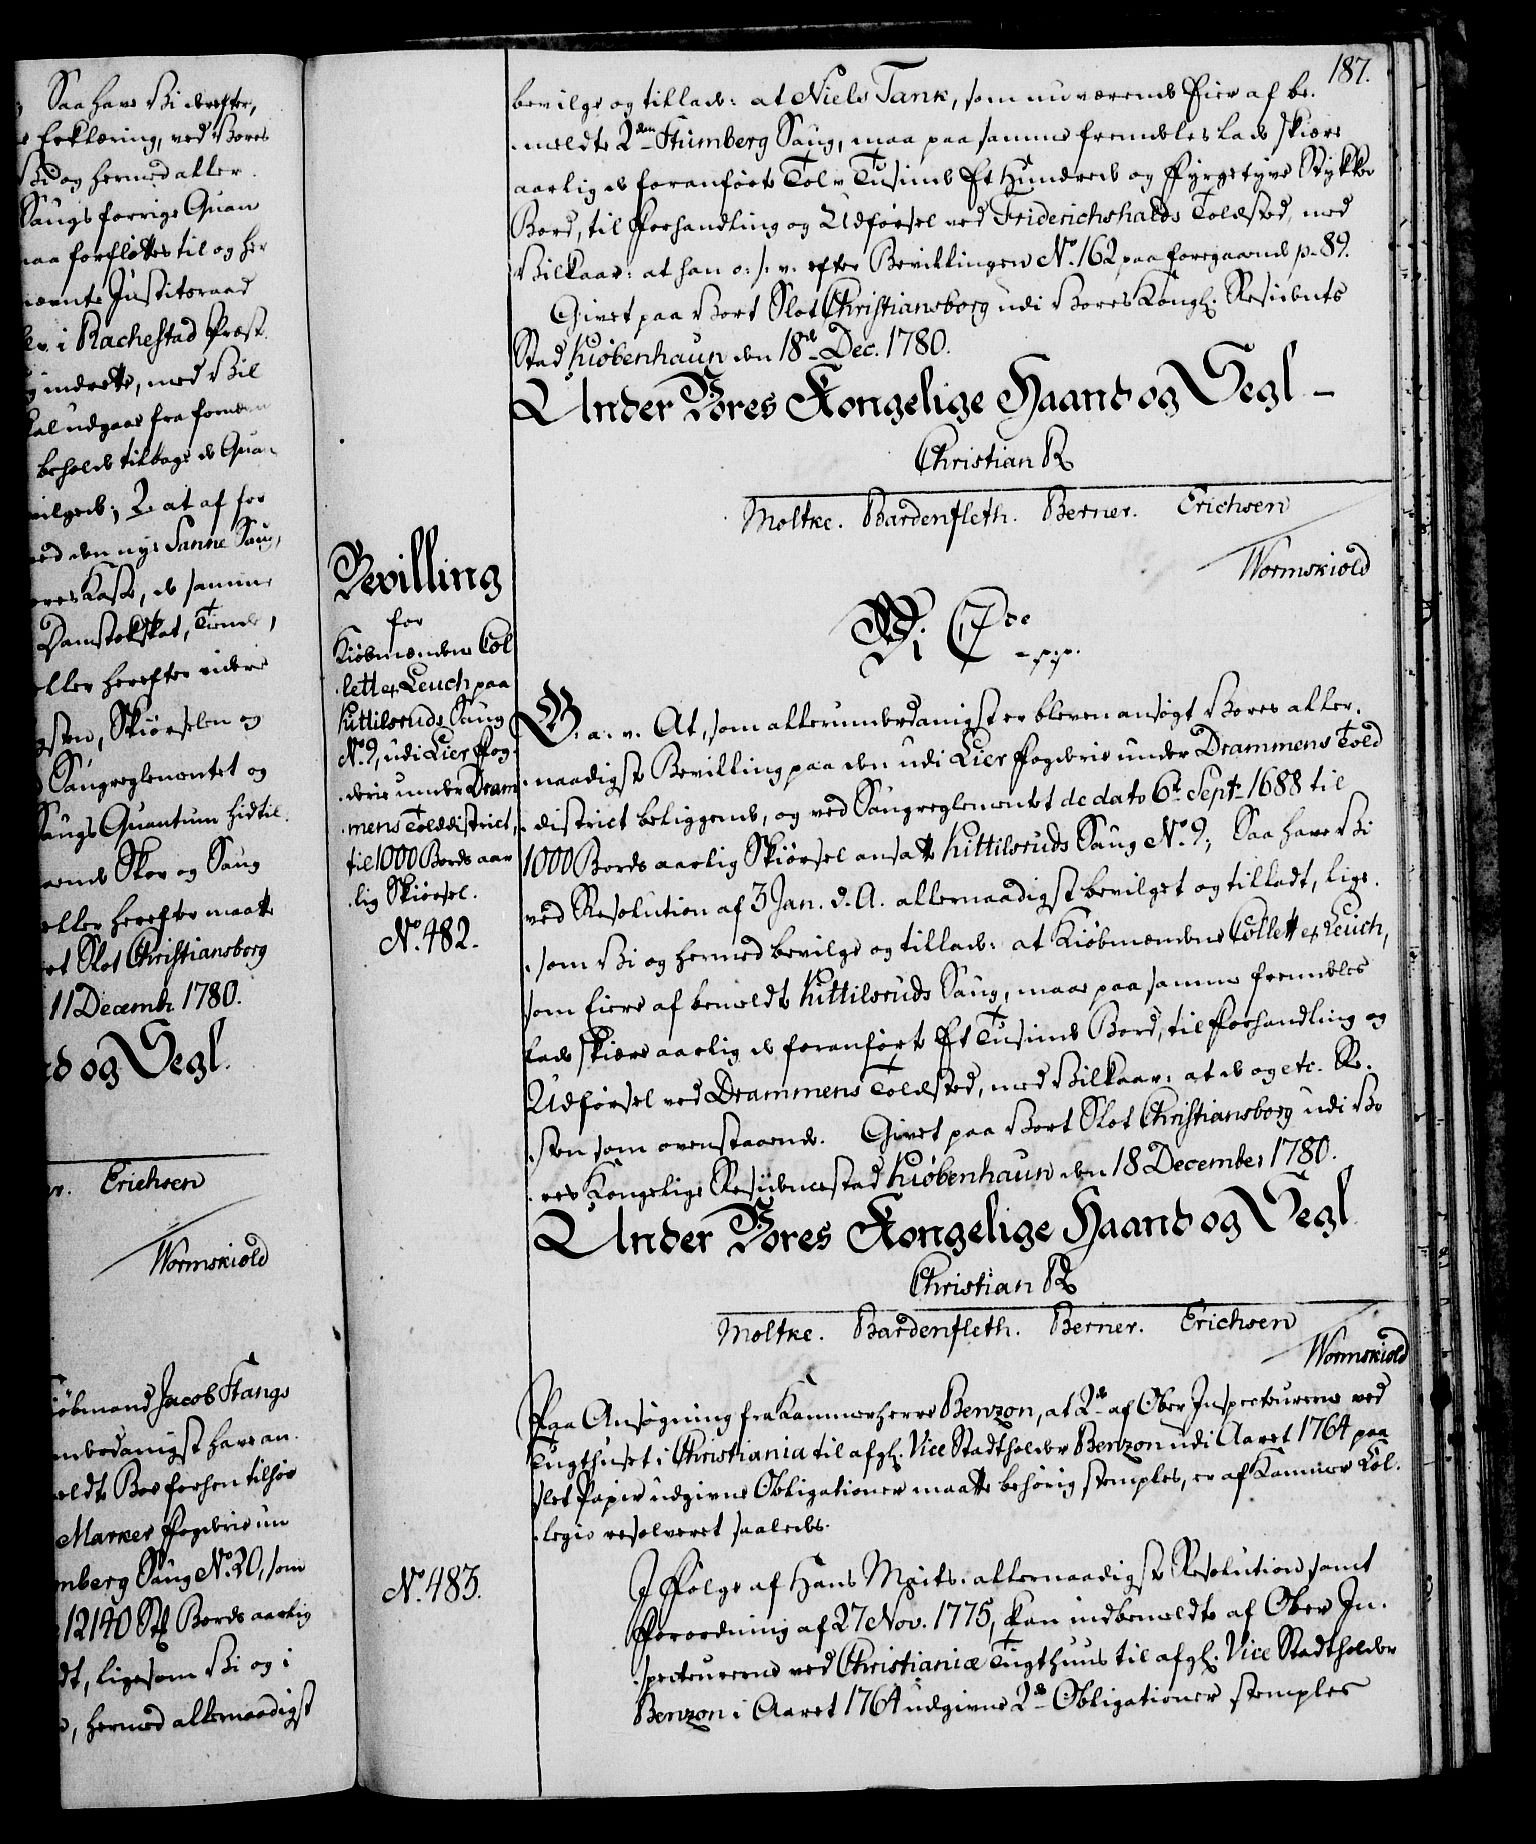 Saa have Vi derefter,
Erklæring, ved Vores
Vi og hermed aller
Saugs forrige Quan
maa forflöttes til og her
nævnte Justitsraad
i Rachestad Præst
indrette, med Vil
skal udgaae fra formen
beholde tilbage de Quan
vilgede; 2. at af for
ved den nye Sanne Saug,
vores Kasse, de samme
Damstokskat, Tiende,
eller herefter videre
Skiørselen og
Saugreglementet og
Saugs Quantum hidtil
ende Skov og Saug
eller herefter maatte
Vort Slot Christiansborg
11 Decembr 1780.
nd og Segl.
Erichsen
Wormskiold
Kiöbmand Jacob Stangs
underdanigst have an
meldte Boe forhen tilhør
Marker Fogderie un
mberg Saug No. 20, som
12140 Stk Bords aarlig
ligesom Vi og i
hermed allernaadigst
187.
bevilge og tillade: at Niels Tank, som nuværende Eier af be
meldte 2den Stumberg Saug, maa paa samme fremdeles lade skiære
aarlig de foranførte Tolv Tusinde Et Hundrede og Fyrgetyve Stykker
Bord, til Forhandling og Udførsel ved Friderichshalds Toldsted, med
Vilkaar: at han o: s: v: efter Bevillingen No. 162 paa foregaaende p. 89.
Givet paa Vort Slot Christiansborg udi Vores Kongl. Residents
Stad Kiöbenhaun den 18de Dec. 1780.
Under Vores Kongelige Haand og Segl –
Christian R
Moltke. Bardenfleth. Berner. Erichsen
Wormskiold
Vi C 7de
p:p.
Bevilling
for
Kiöbmændene Col
lett & Leuch paa
Kittilsruds Saug
No. 9, udi Lier Fog
derie under Dram
mens Tolddistrict,
til 1000 Bords aar
lig Skiörsel.
No. 482.
G. a. v. At, som allerunderdanigst er bleven ansøgt Vores aller
naadigste Bevilling paa den udi Lier Fogderie under Drammens Told
district beliggende, og ved Saugreglementet de dato 6te Septr 1688 til
1000 Bords aarlig Skiørsel ansatte Kittilsruds Saug No. 9; Saa have Vi
ved Resolution af 3 Jan. d. A. allernaadigst bevilget og tilladt, lige
som Vi og hermed bevilge og tillade: at Kiöbmændene Collett & Leuch,
som Eiere af bemeldte Kittilsruds Saug, maae paa samme fremdeles
lade skiære aarlig de foranførte Et Tusinde Bord, til Forhandling og
Udførsel ved Drammens Toldsted, med Vilkaar: at de og etc. Re
sten som ovenstaaende. Givet paa Vort Slot Christiansborg udi Vo
res Kongelige Residencestad Kiöbenhaun den 18 December 1780.
Under Vores Kongelige Haand og Segl
Christian R
Moltke. Bardenfleth. Berner. Erichsen
Wormskiold
Paa Ansøgning fra Kammerherre Benzon, at 2de af Ober Inspecteurerne ved
Tugthuset i Christiania til afgl. Vice Stadtholder Benzon udi Aaret 1764 paa
slet Papir udgivne Obligationer maatte behørig stemples, er af Kammer Col
legio resolveret saaledes.
No. 483.
I Følge af Hans Maiets. allernaadigste Resolution samt
Forordning af 27 Nov. 1775, kan indbemeldte af Ober In
specteurerne ved Christianiæ Tugthuus til afgl. Vice Stadtholder
Benzon i Aaret 1764 udgivne 2de Obligationer stemples